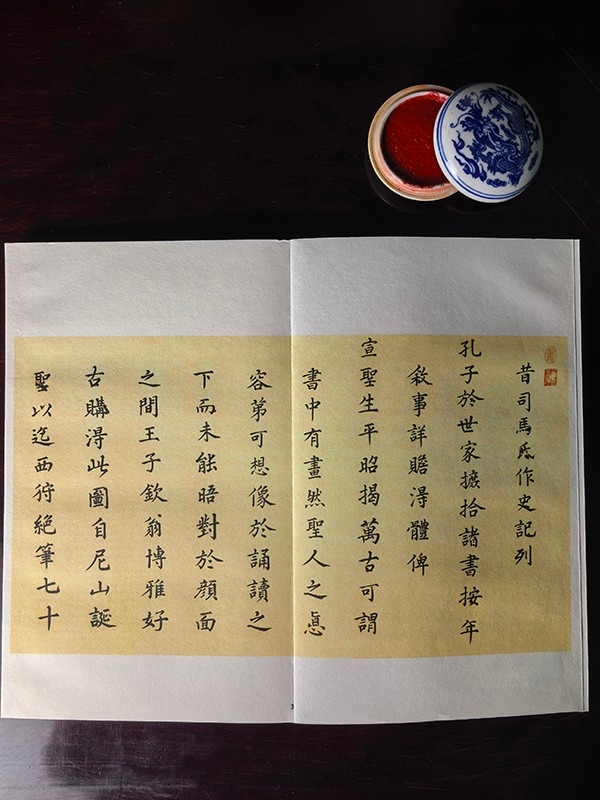 昔司馬氏作史記列
孔子於世家摭拾諸書按年
敘事詳贍得體俾
宣聖生平昭揭萬古可謂
書中有畫然聖人之悳
容苐可想像於誦讀之
下而未能晤對於顔面
之間王子欽翁博雅好
古購得此圖自尼山誕
聖以迄西狩絶筆七十
3